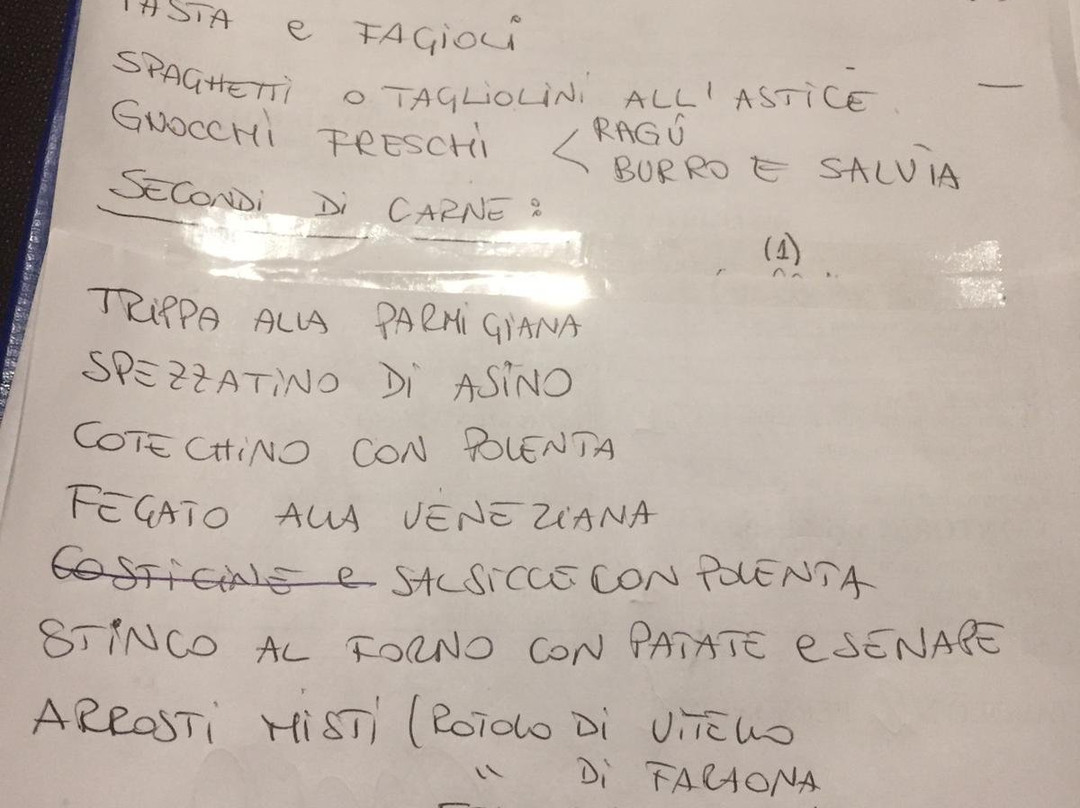 PASTA e FAGIOLI
SPAGHETTI O TAGLIOLINI ALL'ASTICE
GNOCCHI FRESCHI < RAGÛ
BURRO E SALVIA
SECONDI DI CARNE:
(1)
TRIPPA ALLA PARMIGIANA
SPEZZATINO DI ASINO
COTECHINO CON POLENTA
FEGATO ALLA VENEZIANA
COSTICINE e SALSICCE CON POLENTA
STINCO AL FORNO CON PATATE e SENAPE
ARROSTI MISTI (ROTOLO DI VITELLO
" DI FARAONA